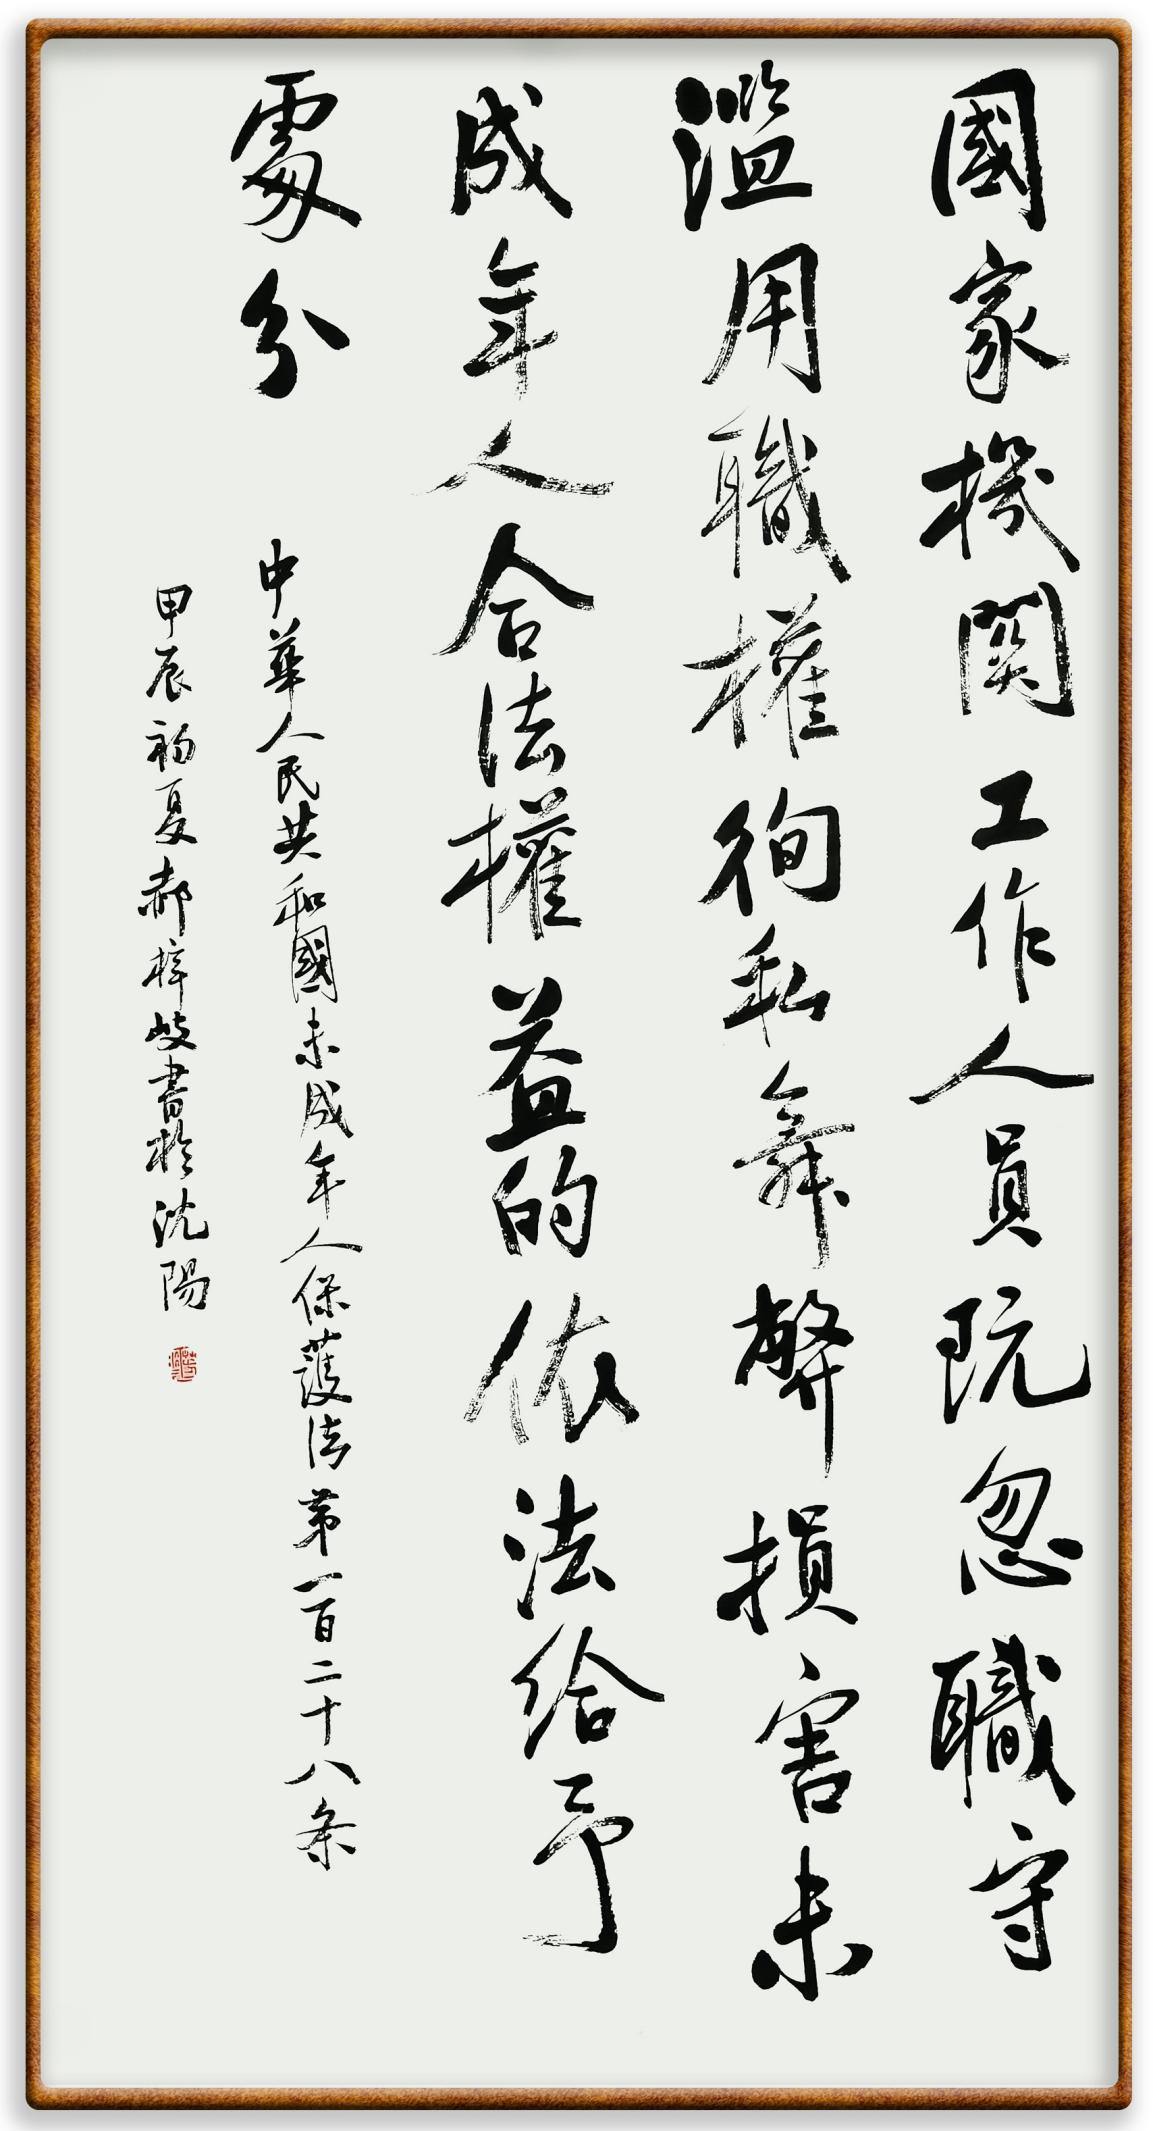 國家機関工作人員玩忽職守
濫用職權徇私舞弊損害未
成年人合法權益的依法給予
處分
中華人民共和國未成年人保護法第一百二十八条
甲辰初夏郝梓岐書於沈陽